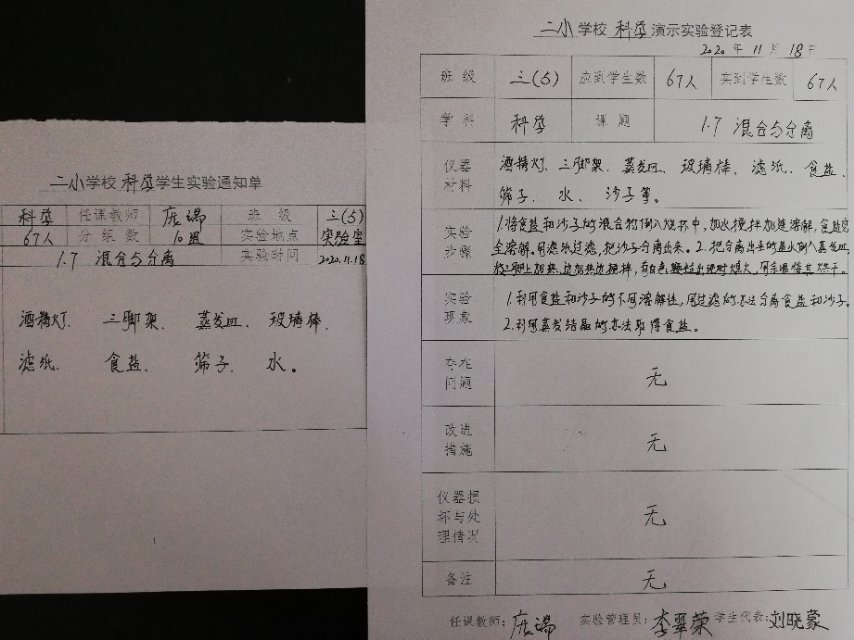 二小学校科学学生实验通知单
科学 任课教师 庞瑞 班级 三(5)
67人 分组数 10组 实验地点 实验室
1.7 混合与分离 实验时间 2020.11.18
酒精灯、三脚架、蒸发皿、玻璃棒、
滤纸、食盐、筛子、水。
二小学校科学演示实验登记表
2020年11月18日
班级 三(5) 应到学生数 67人 实到学生数 67人
学科 科学 课题 1.7 混合与分离
仪器材料 酒精灯、三脚架、蒸发皿、玻璃棒、滤纸、食盐、
筛子、水、沙子等。
实验步骤 1.将食盐和沙子的混合物倒入烧杯中,加水搅拌加速溶解,食盐完
全溶解。用滤纸过滤,把沙子分离出来。2.把分离出来的盐水倒入蒸发皿,
加热,边加热边搅拌,有白色颗粒出现时熄火,用余温蒸干。
实验现象 1.利用食盐和沙子的不同溶解性,用过滤的办法分离食盐和沙子。
2.利用蒸发结晶的办法取得食盐。
存在问题 无
改进措施 无
仪器损坏与处理情况 无
备注 无
任课教师:庞瑞 实验管理员:李翠荣 学生代表:刘晓蒙